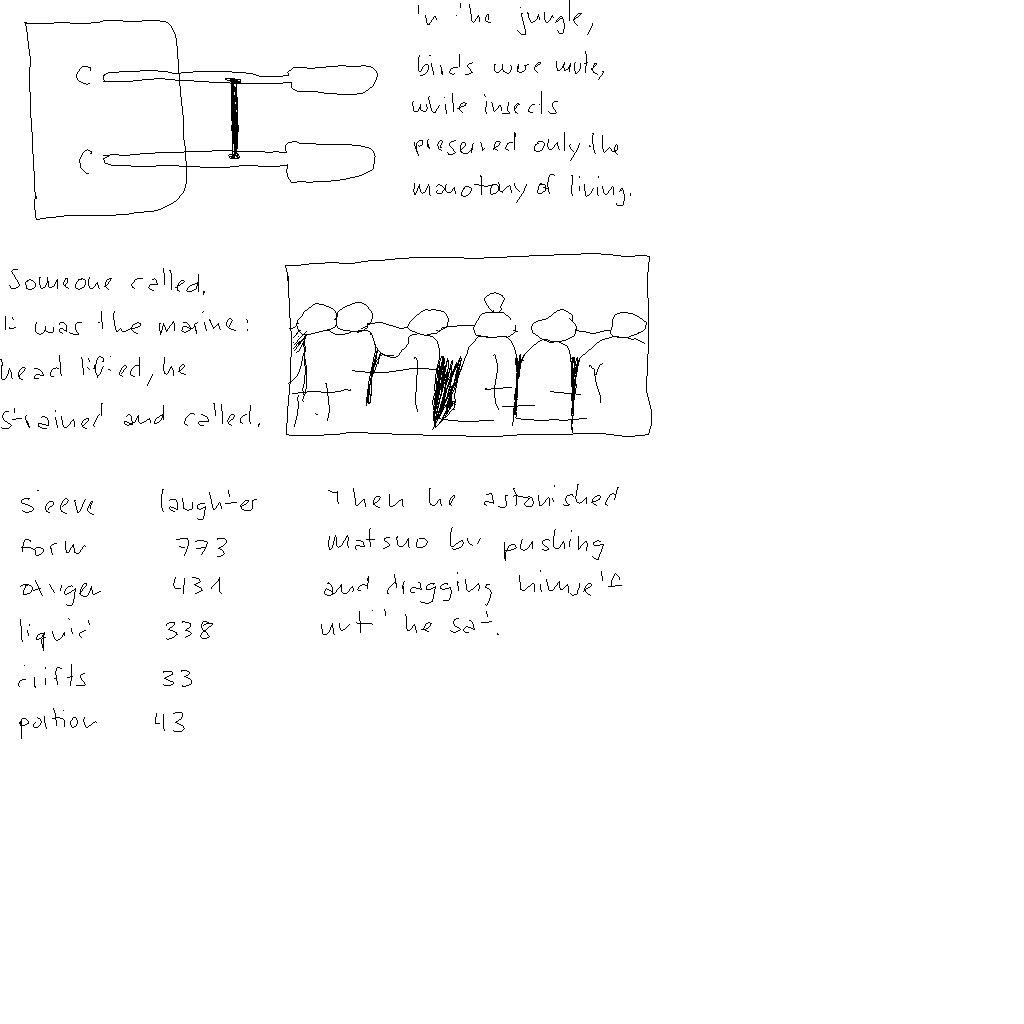 In the jungle,
birds were mute,
while insects
preserved only the
monotony of living.
C
C
Someone called.
It was the marine:
head lifted, he
strained and called.
sleeve laughter
form 773
oxygen 431
liquid 338
drifts 33
portion 43
Then he astonished
Matsuo by pushing
and dragging himself
until he sat.